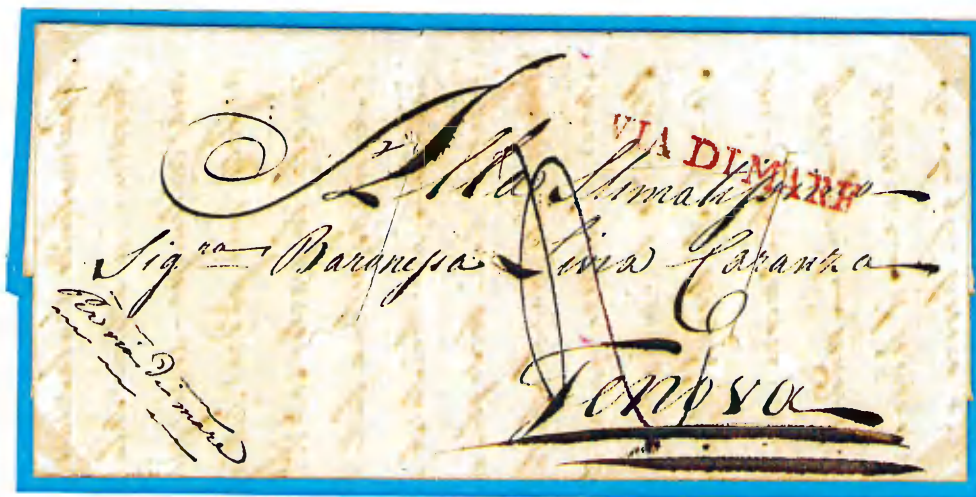 VIA DI MARE
Alla Stimatissima
Sig.ra Baronessa Livia Caranza
Genova
Per via di mare